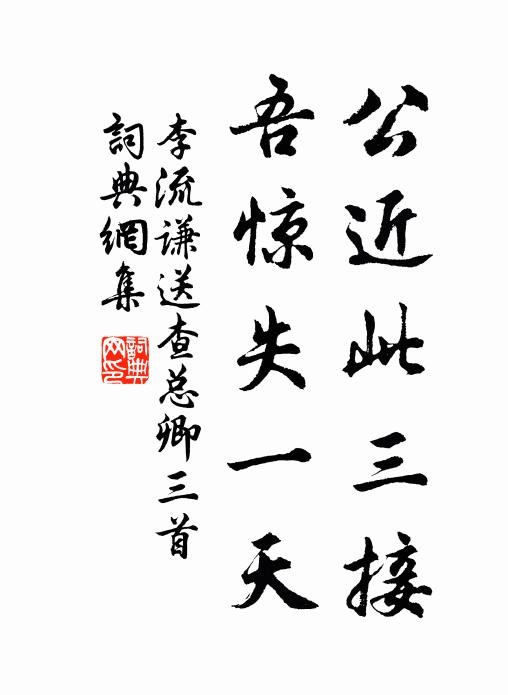 公近此三接
吾惊失一天
李流谦送查总卿三首
詞典網集
詞典网印